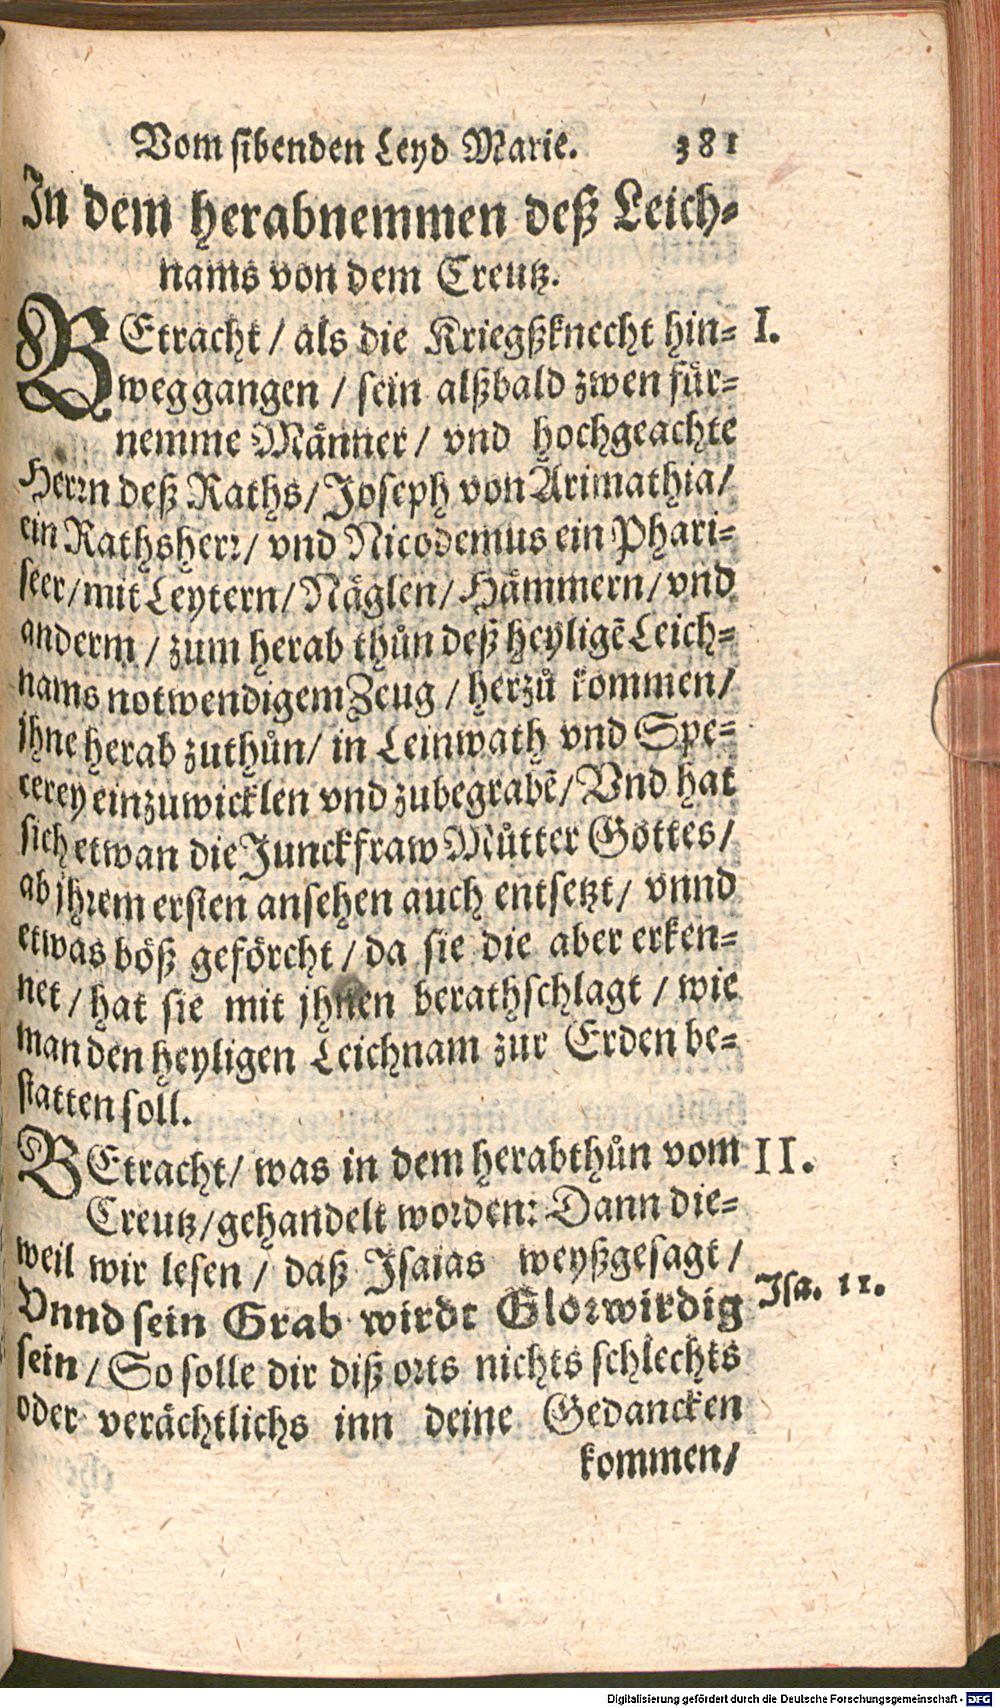 Vom sibenden Leyd Marie. 381
In dem herabnemmen deß Leich-
nams von dem Creutz.
BEtracht / als die Kriegßknecht hin- I.
weggangen / sein alßbald zwen fuͤr-
nemme Maͤnner / vnd hochgeachte
Herrn deß Raths / Joseph von Arimathia /
ein Rathsherr / vnd Nicodemus ein Phari-
seer / mit Leytern / Naͤglen / Haͤmmern / vnd
anderm / zum herab thuͦn deß heyligẽ Leich-
nams notwendigem Zeug / herzuͦ kommen /
jhne herab zuthuͦn / in Leinwath vnd Spe-
cerey einzuwicklen vnd zubegrabẽ / Vnd hat
sich etwan die Junckfraw Muͦtter Gottes /
ab jhrem ersten ansehen auch entsetzt / vnnd
etwas boͤß gefoͤrcht / da sie die aber erken-
net / hat sie mit jhnen berathschlagt / wie
man den heyligen Leichnam zur Erden be-
statten soll.
BEtracht / was in dem herabthuͦn vom II.
Creutz / gehandelt worden: Dann die-
weil wir lesen / daß Isaias weyßgesagt /
Vnnd sein Grab wirdt Glorwirdig Isa. 11.
sein / So solle dir diß orts nichts schlechts
oder veraͤchtlichs inn deine Gedancken
kommen /
Digitalisierung gefördert durch die Deutsche Forschungsgemeinschaft - DFG